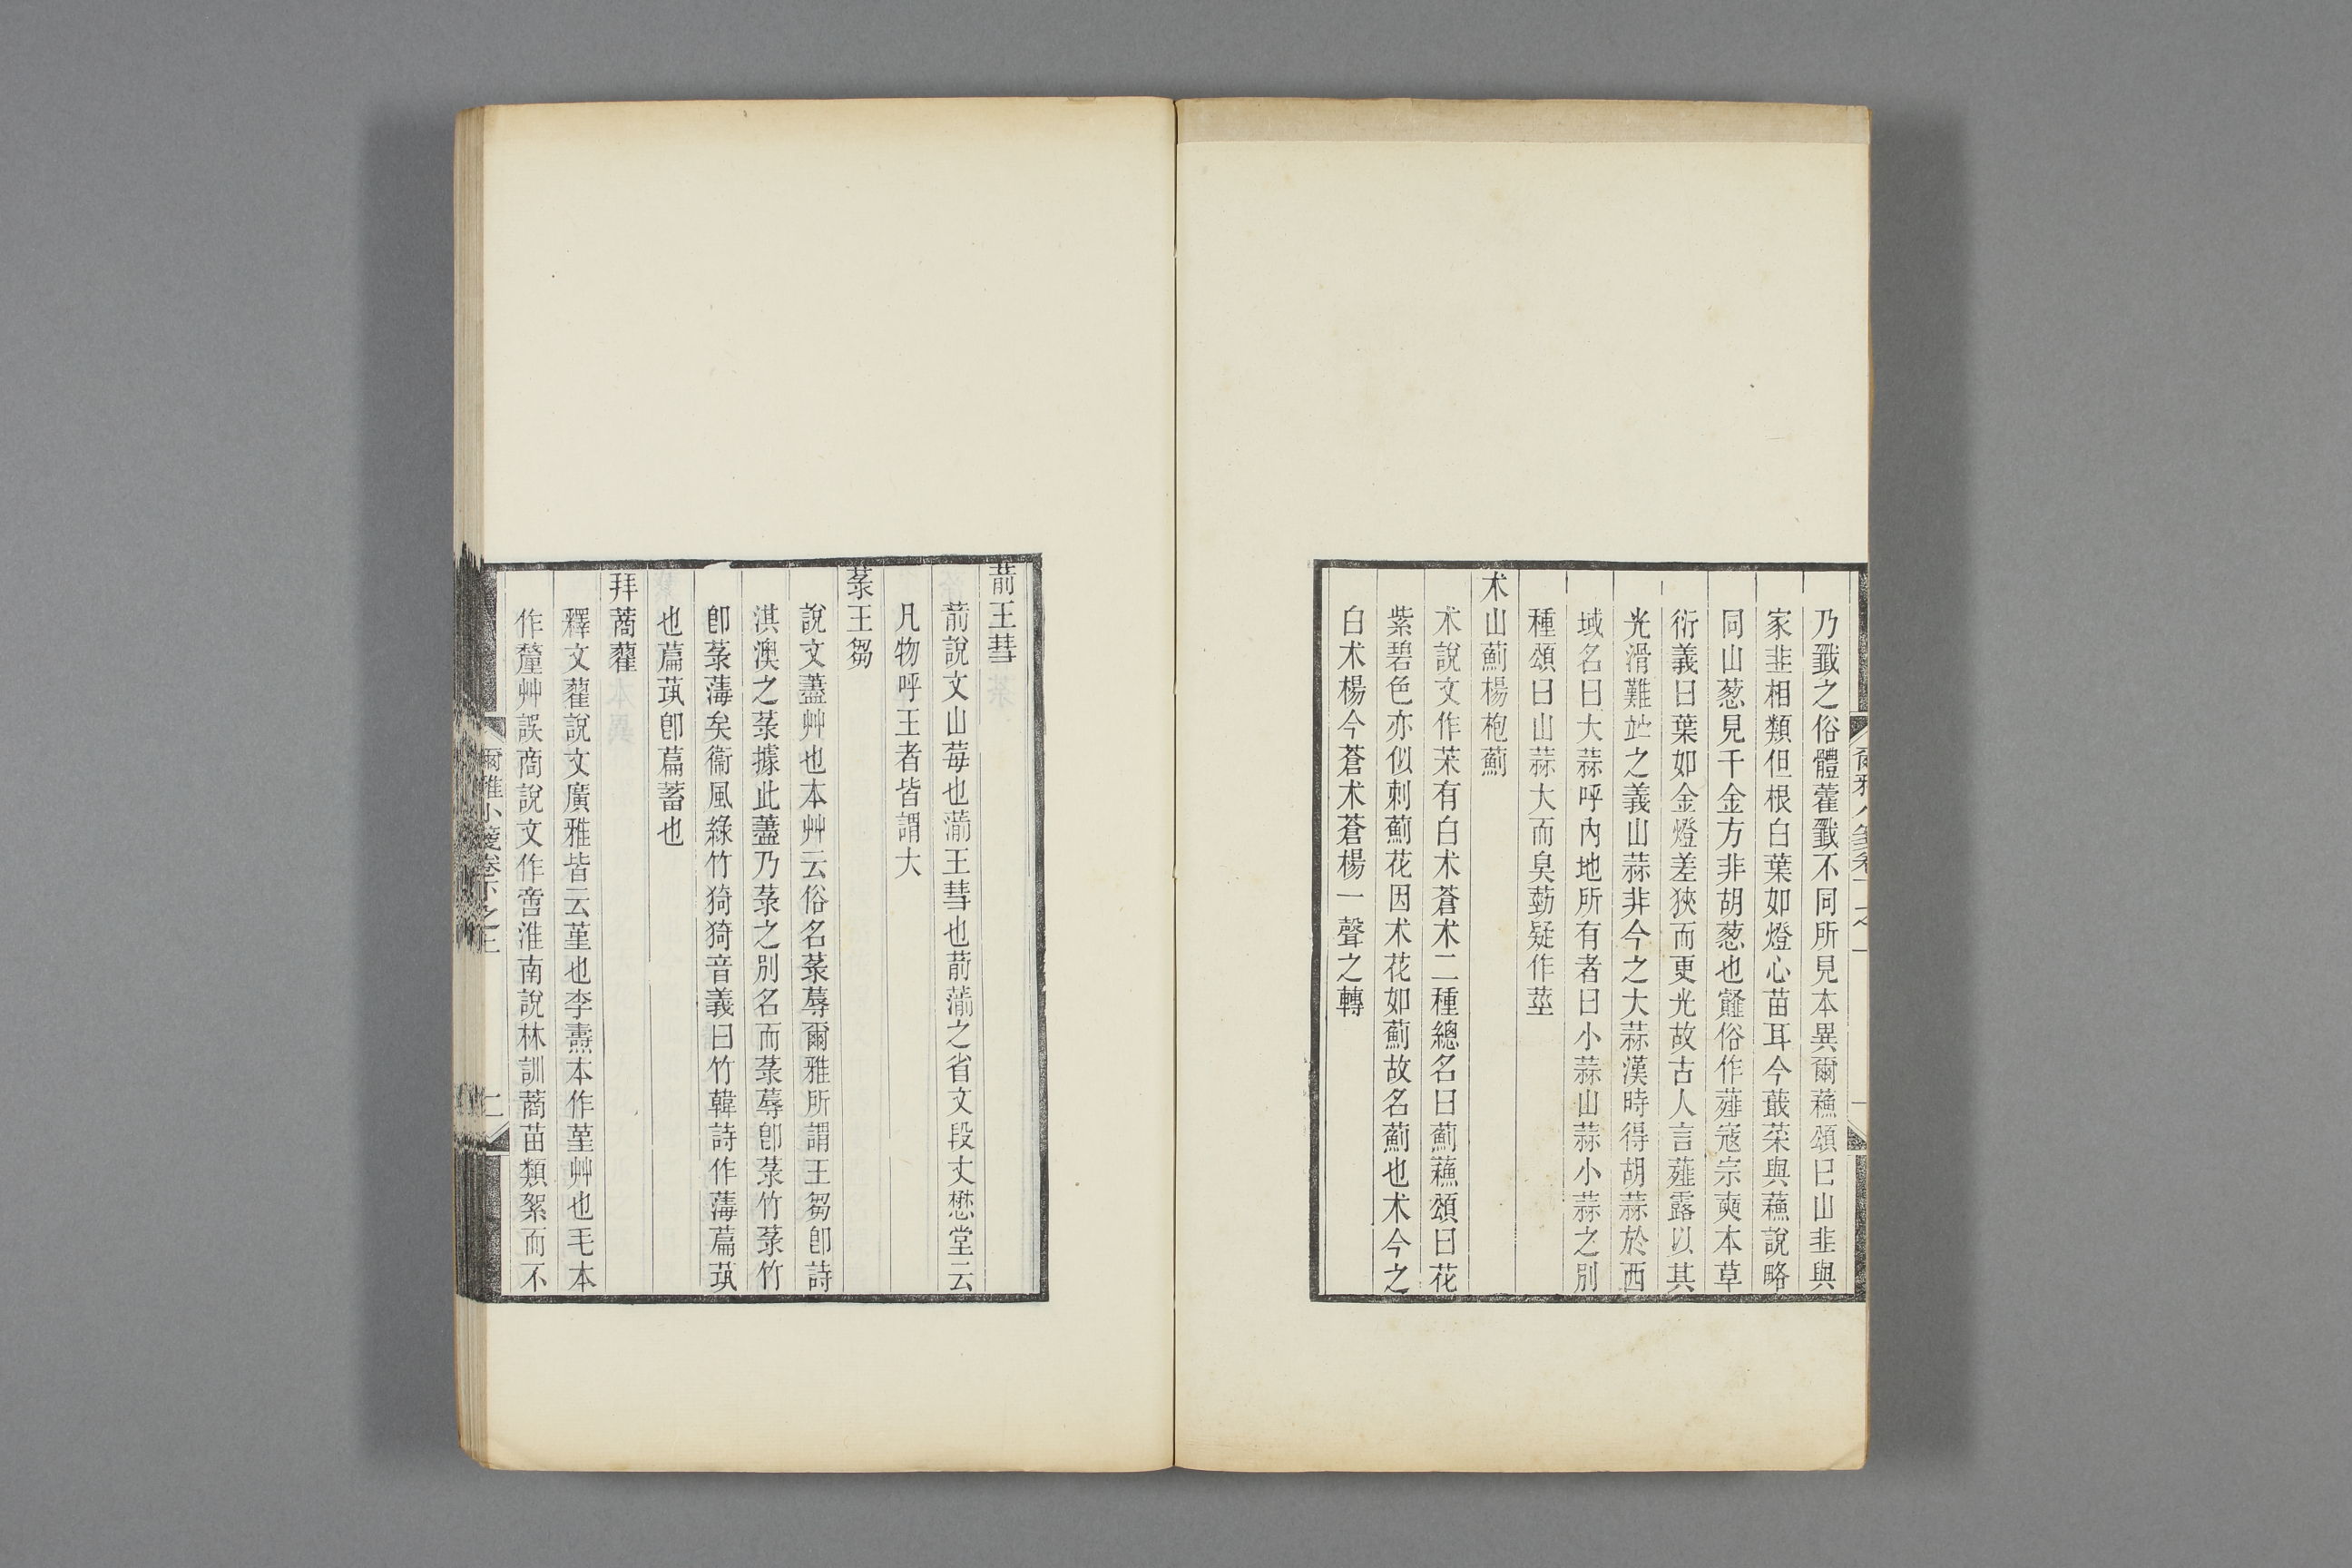 乃韱之俗體藿韱不同所見本異爾蘓頌曰山韭與
家韭相類但根白葉如燈心苗耳今蕺菜與蘓說略
同山葱見千金方非胡葱也䪥俗作薤寇宗奭本草
衍義曰葉如金燈差狹而更光故古人言薤露以其
光滑難竚之義山蒜非今之大蒜漢時得胡蒜於西
域名曰大蒜呼內地所有者曰小蒜山蒜小蒜之別
種頌曰山蒜大而臭葝疑作莖
术山薊楊枹薊
术說文作荗有白术蒼术二種總名曰薊蘓頌曰花
紫碧色亦似刺薊花因术花如薊故名薊也术今之
白术楊今蒼术蒼楊一聲之轉
葥王彗
葥說文山莓也湔王彗也葥湔之省文段丈懋堂云
凡物呼王者皆謂大
菉王芻
說文藎艸也本艸云俗名菉蓐爾雅所謂王芻卽詩
淇澳之菉據此藎乃菉之別名而菉蓐卽菉竹菉竹
卽菉薄矣衞風綠竹猗猗音義曰竹韓詩作薄萹茿
也萹茿卽萹蓄也
拜蔏藋
釋文藋說文廣雅皆云堇也李燾本作堇艸也毛本
作釐艸誤商說文作啻淮南說林訓蔏苗類絮而不
爾雅小箋卷下之上
二